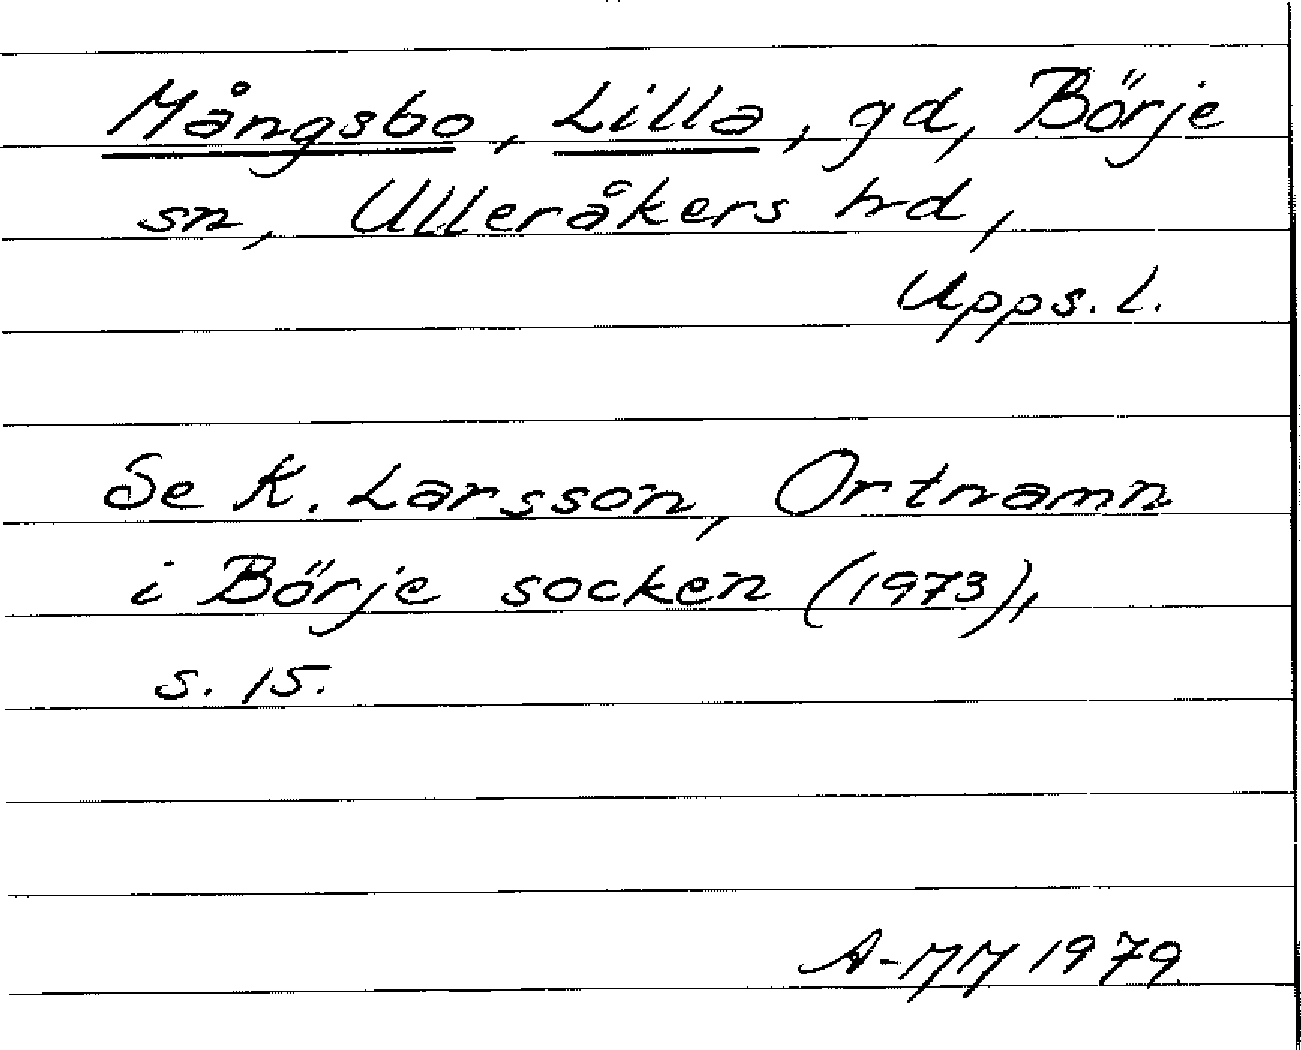 Mångsbo, Lilla, gd, Börje
sn, Ulleråkers hd,
Upps. l.
Se K. Larsson, Ortnamn
i Börje socken (1973),
s. 15.
A-MM 1979